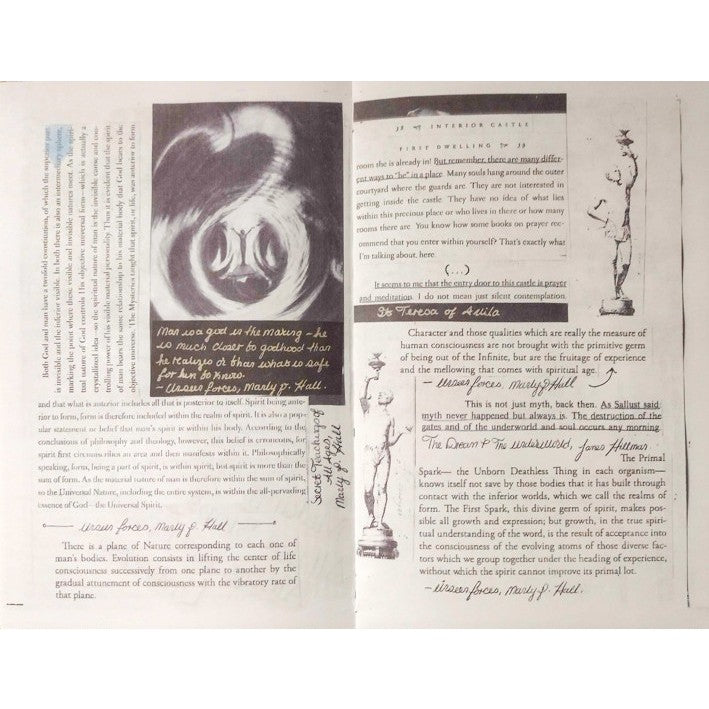 Both God and man have a twofold constitution, of which the superior part
is invisible and the inferior visible. In both there is also an intermediary sphere,
marking the point where these visible and invisible natures meet. As the spiri-
tual nature of God controls His objective universal form—which is actually a
crystallized idea—so the spiritual nature of man is the invisible cause and con-
trolling power of his visible material personality. Thus it is evident that the spirit
of man bears the same relationship to his material body that God bears to the
objective universe. The Mysteries taught that spirit, or life, was anterior to form
Man is a god in the making - he
is much closer to godhood than
he realizes or than what is safe
for him to know.
- Unseen forces, Manly P. Hall.
and that what is anterior includes all that is posterior to itself. Spirit being ante-
rior to form, form is therefore included within the realm of spirit. It is also a popu-
lar statement or belief that man's spirit is within his body. According to the
conclusions of philosophy and theology, however, this belief is erroneous, for
spirit first circumscribes an area and then manifests within it. Philosophically
speaking, form, being a part of spirit, is within spirit; but spirit is more than the
sum of form. As the material nature of man is therefore within the sum of spirit,
so the Universal Nature, including the entire system, is within the all-pervading
essence of God—the Universal Spirit.
Secret Teachings of
All Ages,
Manly P. Hall
Unseen forces, Manly P. Hall
There is a plane of Nature corresponding to each one of
man's bodies. Evolution consists in lifting the center of life
consciousness successively from one plane to another by the
gradual attunement of consciousness with the vibratory rate of
that plane.
38 INTERIOR CASTLE
FIRST DWELLING 39
room she is already in! But remember, there are many differ-
ent ways to "be" in a place. Many souls hang around the outer
courtyard where the guards are. They are not interested in
getting inside the castle. They have no idea of what lies
within this precious place or who lives in there or how many
rooms there are. You know how some books on prayer rec-
ommend that you enter within yourself? That's exactly what
I'm talking about, here.
(...)
It seems to me that the entry door to this castle is prayer
and meditation. I do not mean just silent contemplation,
St Teresa of Avila
Character and those qualities which are really the measure of
human consciousness are not brought with the primitive germ
of being out of the Infinite, but are the fruitage of experience
and the mellowing that comes with spiritual age.
- Unseen forces, Manly P Hall
This is not just myth, back then. As Sallust said
myth never happened but always is. The destruction of the
gates and of the underworld and soul occurs any morning.
The Dream & The Underworld, James Hillman.
The Primal
Spark— the Unborn Deathless Thing in each organism—
knows itself not save by those bodies that it has built through
contact with the inferior worlds, which we call the realms of
form. The First Spark, this divine germ of spirit, makes pos-
sible all growth and expression; but growth, in the true spiri-
tual understanding of the word, is the result of acceptance into
the consciousness of the evolving atoms of those diverse fac-
tors which we group together under the heading of experience,
without which the spirit cannot improve its primal lot.
- Unseen forces, Manly P. Hall.